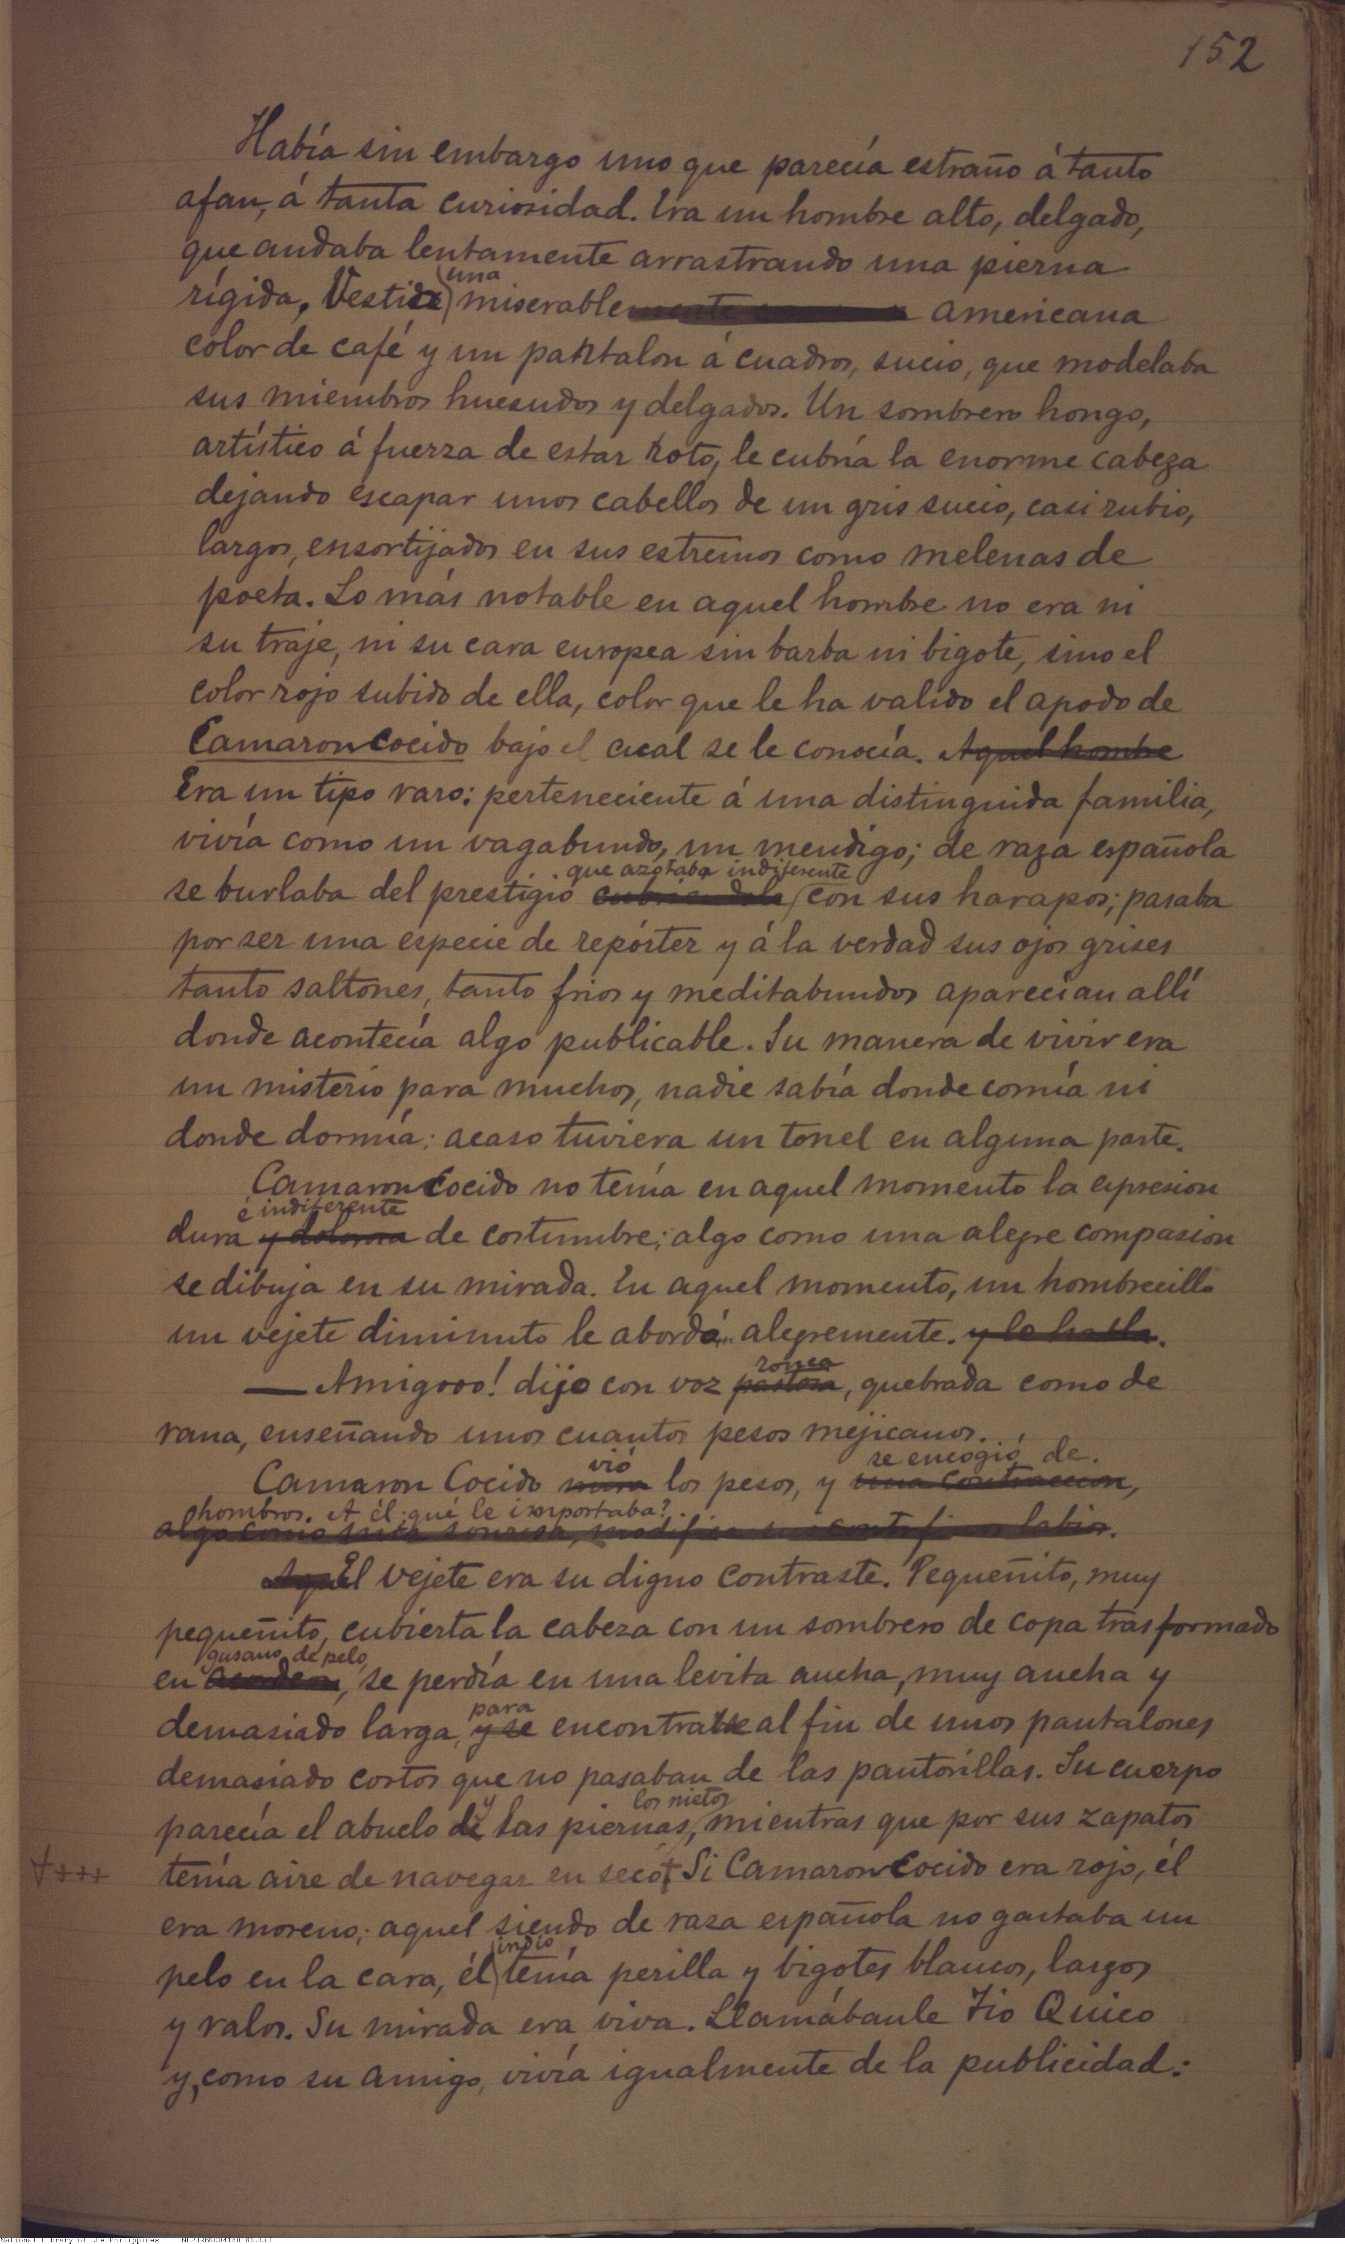 152
Había sin embargo uno que parecía estraño á tanto
afan, á tanta curiosidad. Era un hombre alto, delgado,
que andaba lentamente arrastrando una pierna
una
rígida, Vestía miserablemente americana
color de café y un pantalon á cuadros, sucio, que modelaba
sus miembros huesudos y delgados. Un sombrero hongo,
artístico á fuerza de estar roto, le cubría la enorme cabeza
dejando escapar unos cabellos de un gris sucio, casi rubio,
largos, ensortijados en sus estremos como melenas de
poeta. Lo más notable en aquel hombre no era ni
su traje, ni su cara europea sin barba ni bigote, sino el
color rojo subido de ella, color que le ha valido el apodo de
Camaroncocido bajo el cual se le conocía. Aquel hombre
Era un tipo raro: perteneciente á una distinguida familia,
vivía como un vagabundo, un mendigo; de raza española
que azotaba indiferente
se burlaba del prestigio cubriendola con sus harapos; pasaba
por ser una especie de repórter y á la verdad sus ojos grises
tanto saltones, tanto frios y meditabundos aparecían allí
donde acontecía algo publicable. Su manera de vivir era
un misterio para muchos, nadie sabía donde comía ni
donde dormía: acaso tuviera un tonel en alguna parte.
Camaroncocido no tenía en aquel momento la epresion
é indiferente
dura y dolorosa de costumbre; algo como una alegre compasion
se dibuja en su mirada. En aquel momento, un hombrecillo
un vejete diminuto le abordó alegremente. y le habla.
— Amigooo! dijo con voz pastosa, quebrada como de
ronca
rana, enseñando unos cuantos pesos mejicanos.
vió se encogió de
Camaron Cocido mira los pesos, y una contraccion,
hombros. A él ¿qué le importaba?
algo como una sonrisa, labios.
Aquel El vejete era su digno contraste. Pequeñito, muy
pequeñito, cubierta la cabeza con un sombrero de copa trasformado
gusano de pelo
en , se perdía en una levita ancha, muy ancha y
para
demasiado larga, y se encontrarse al fin de unos pantalones
demasiado cortos que no pasaban de las pantorillas. Su cuerpo
y los nietos
parecía el abuelo de las piernas, mientras que por sus zapatos
tenía aire de navegar en seco. Si Camaroncocido era rojo, él
era moreno; aquel siendo de raza española no gastaba un
indio
pelo en la cara, él tenía perilla y bigotes blancos, largos
y ralos. Su mirada era viva. Llamábanle Tio Quico
y, como su amigo, vivía igualmente de la publicidad: